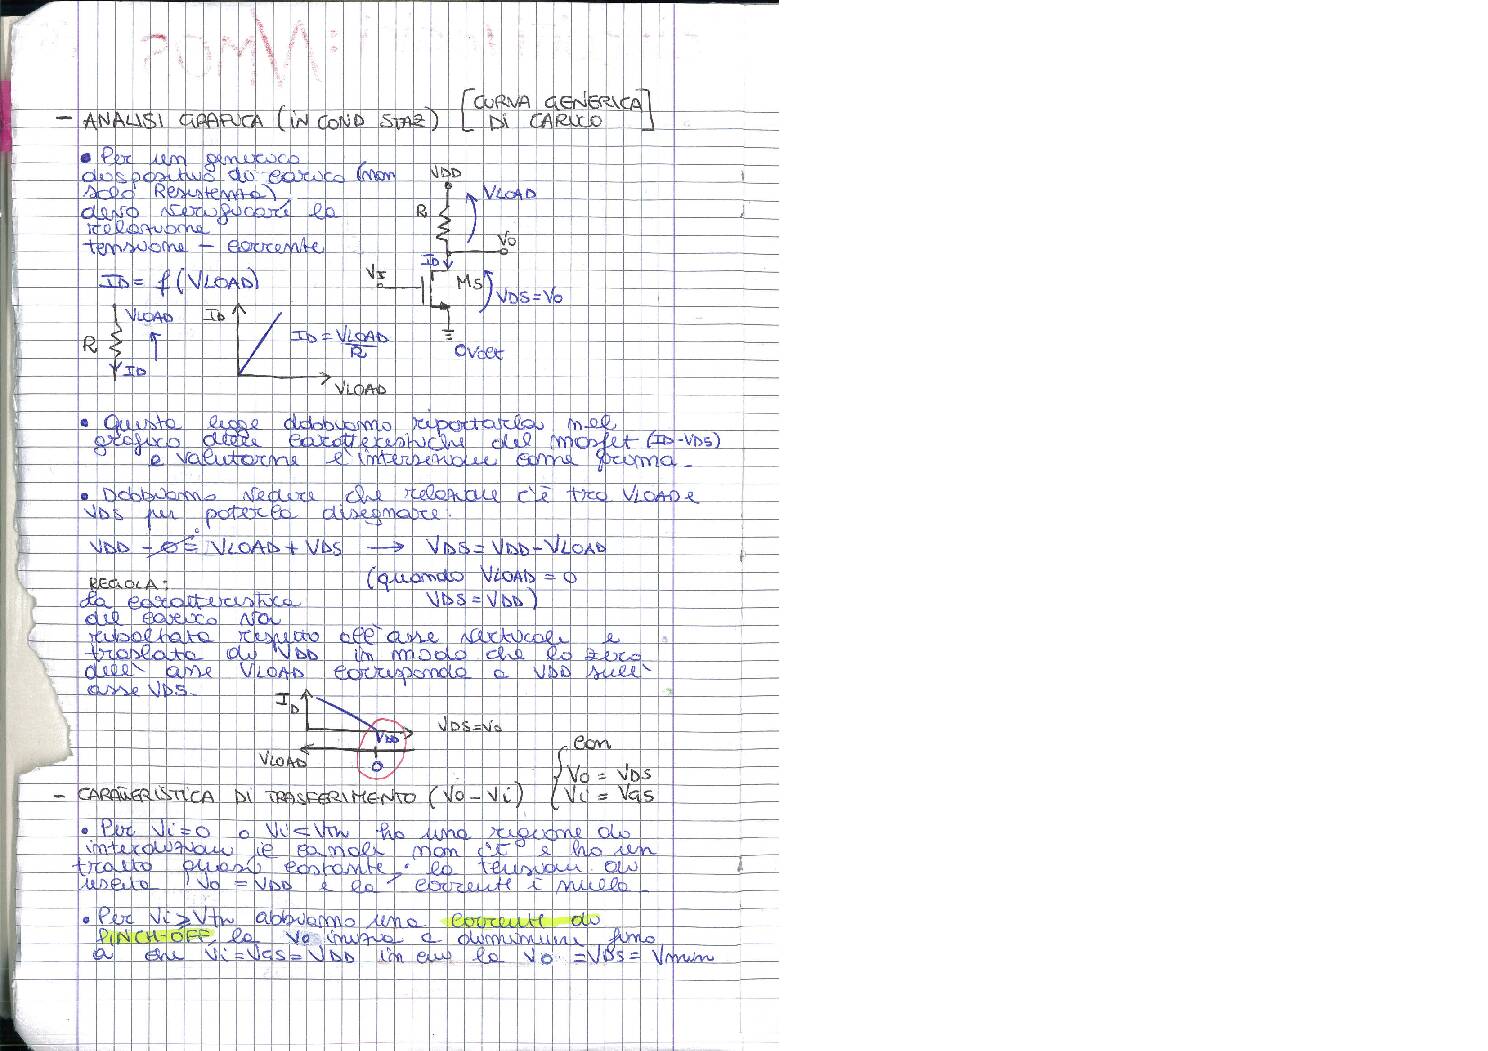 - ANALISI GRAFICA (IN COND STAZ) [CURVA GENERICA DI CARICO]
• Per un generico
dispositivo di carico (non
solo Resistenza)
devo verificare la
relazione
tensione - corrente
ID = f(VLOAD)
VDD
VLOAD
R
Vo
ID
VI
MS
VDS=Vo
0Volt
VLOAD
R
ID
ID
ID = VLOAD
R
VLOAD
• Questa legge dobbiamo riportarla nel
grafico delle caratteristiche del mosfet (ID-VDS)
e valutarne l'intersezione come prima.
• Dobbiamo vedere che relazione c'è tra VLOAD e
VDS per poterla disegnare:
VDD - 0 = VLOAD + VDS → VDS = VDD - VLOAD
(quando VLOAD = 0
VDS = VDD)
REGOLA:
La caratteristica
del carico va
ribaltata rispetto all'asse verticale e
traslata di VDD in modo che lo zero
dell'asse VLOAD corrisponda a VDD sull'
asse VDS.
ID
VDS=Vo
VDD
VLOAD
0
con
Vo = VDS
Vi = VGS
- CARATTERISTICA DI TRASFERIMENTO (Vo - Vi)
• Per Vi=0 o Vi<Vtn ho una regione di
interdizione il canale non c'è e ho un
tratto quasi costante, la tensione di
uscita Vo = VDD e la corrente è nulla.
• Per Vi ≥ Vtn abbiamo una corrente di
PINCH-OFF la Vo inizia a diminuire fino
a che Vi=VGS=VDD in cui la Vo = VDS = Vmin